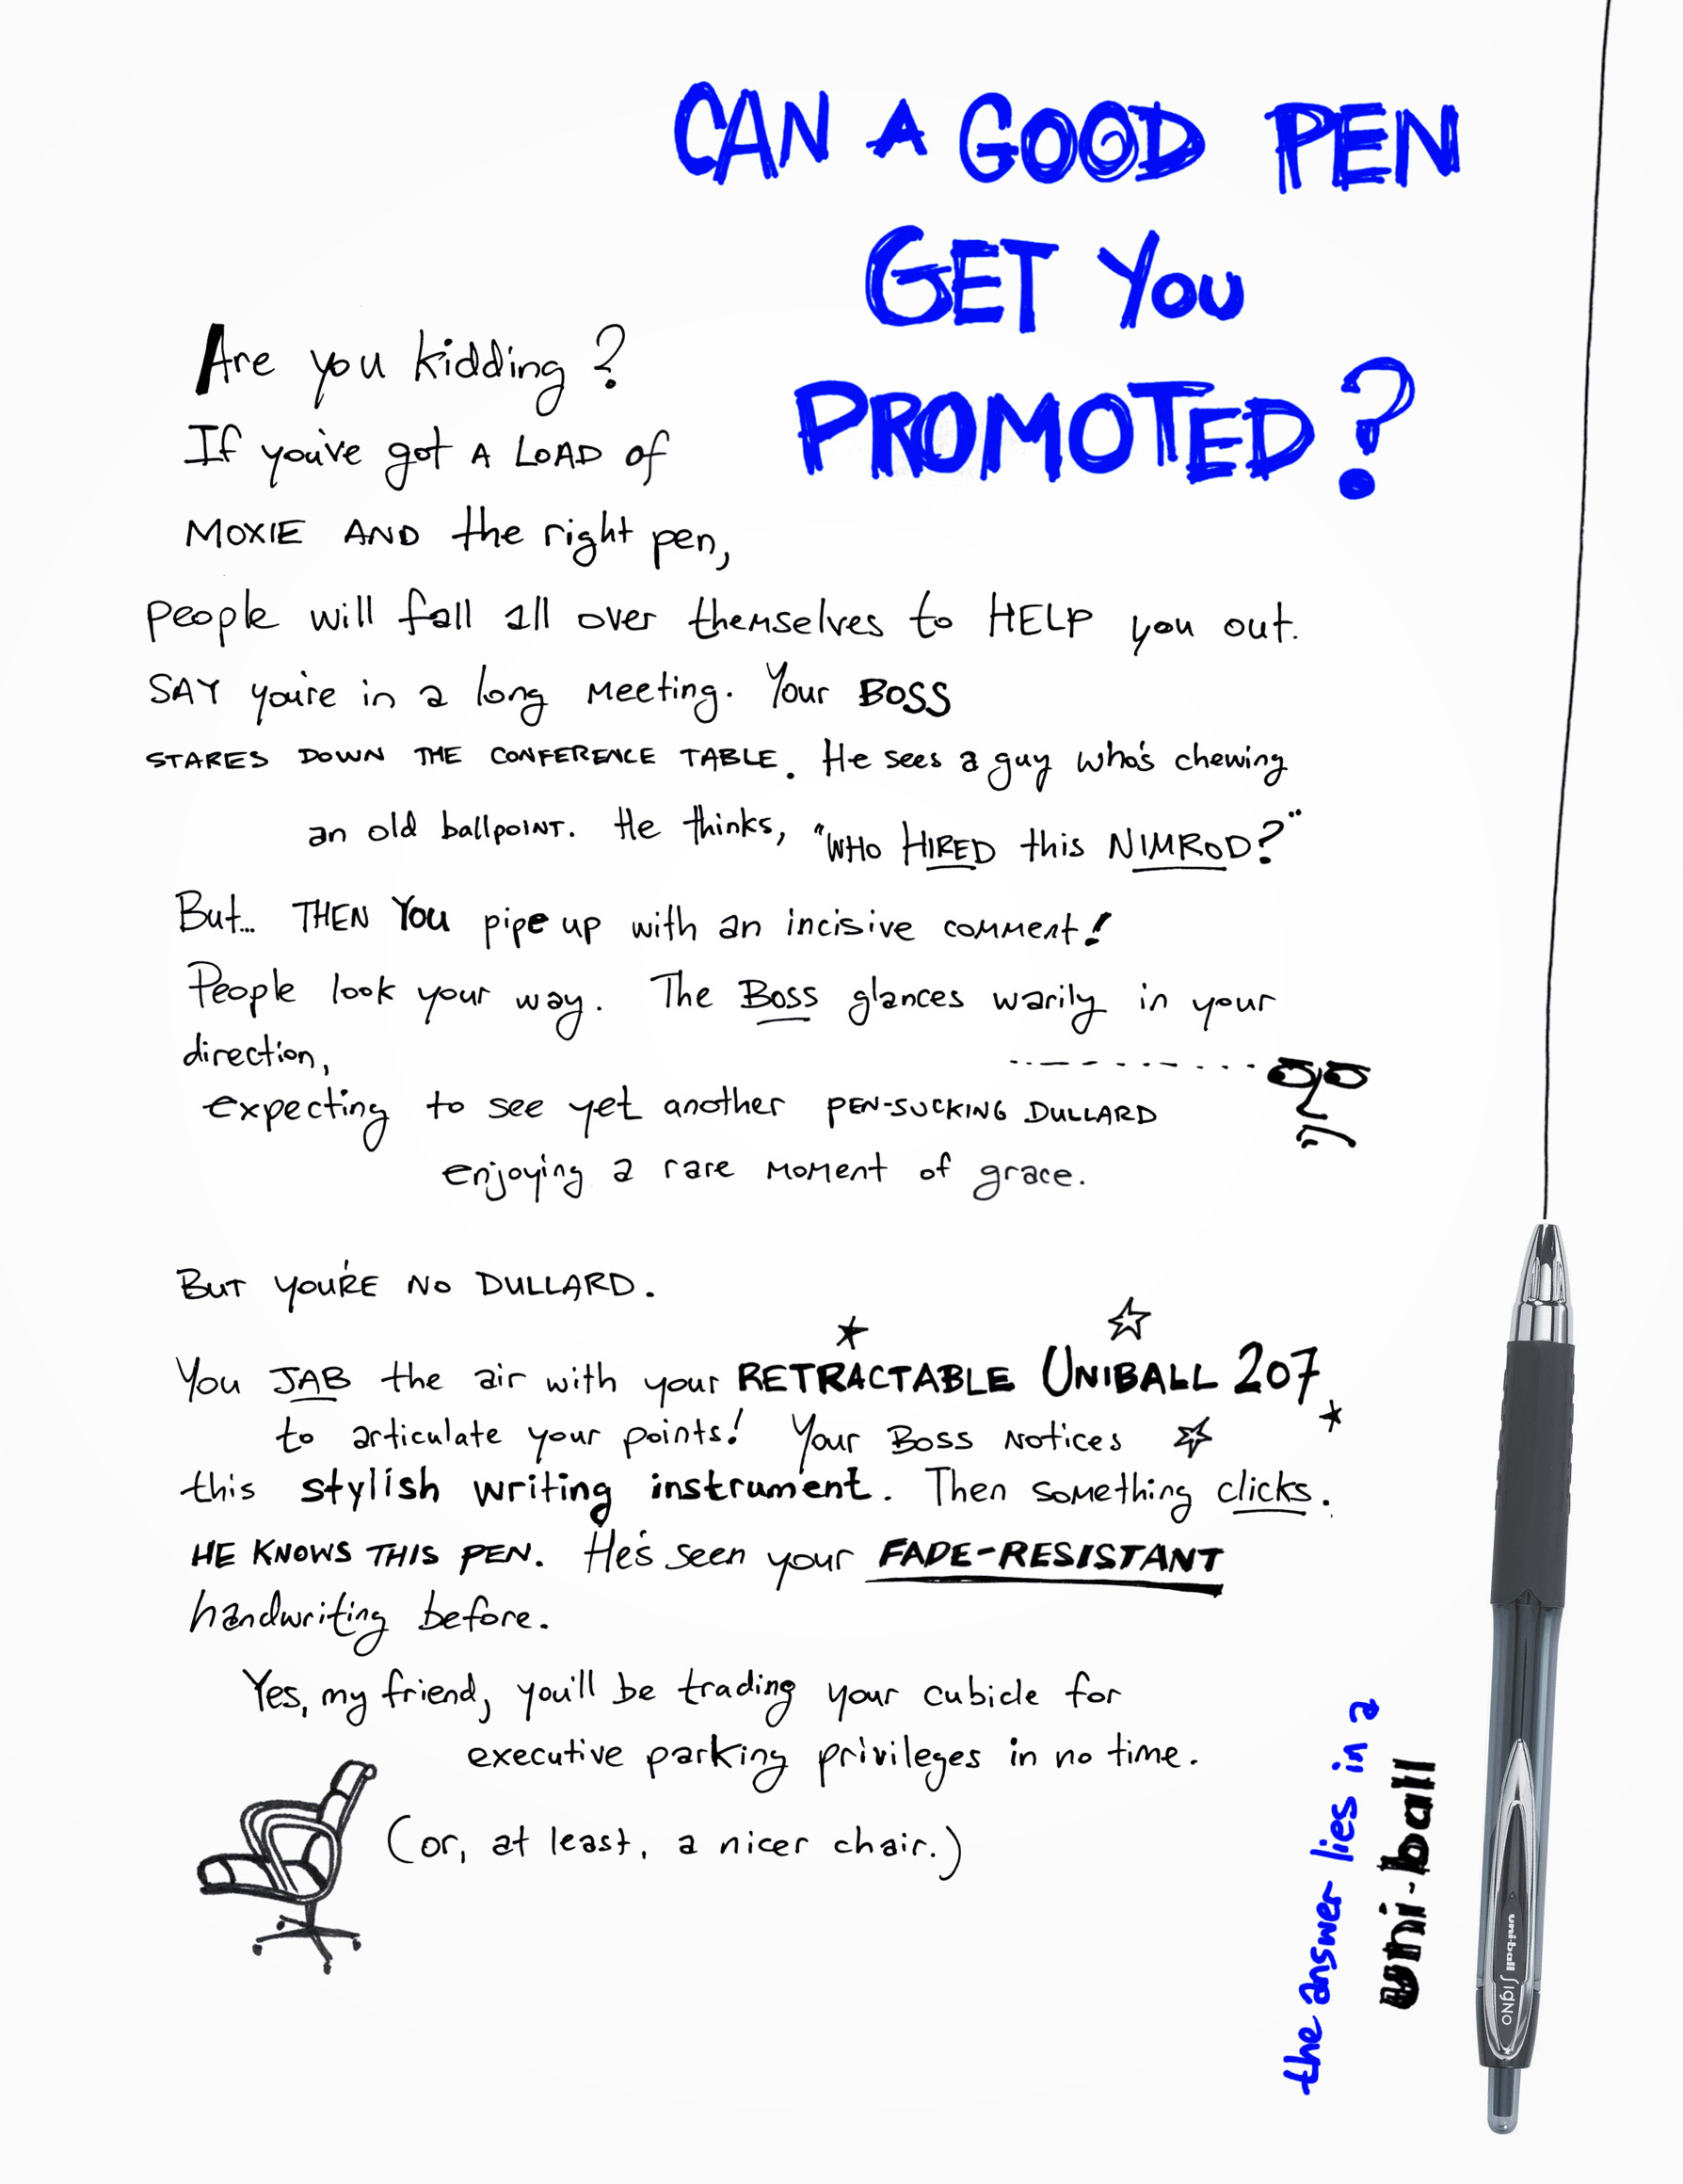 CAN A GOOD PEN
GET YOU
PROMOTED?
Are you kidding?
If you've got A LOAD of
MOXIE AND the right pen,
people will fall all over themselves to HELP you out.
SAY you're in a long meeting. Your BOSS
STARES DOWN THE CONFERENCE TABLE. He sees a guy who's chewing
an old ballpoint. He thinks, "WHO HIRED this NIMROD?"
But... THEN YOU pipe up with an incisive comment!
People look your way. The Boss glances warily in your
direction,
expecting to see yet another PEN-SUCKING DULLARD
enjoying a rare moment of grace.
BUT YOU'RE NO DULLARD.
You JAB the air with your RETRACTABLE UNIBALL 207
to articulate your points! Your Boss notices
this stylish writing instrument. Then something clicks.
HE KNOWS THIS PEN. He's seen your FADE-RESISTANT
handwriting before.
Yes, my friend, you'll be trading your cubicle for
executive parking privileges in no time.
(or, at least, a nicer chair.)
the answer lies in a
uni-ball
uni-ball SIGNO